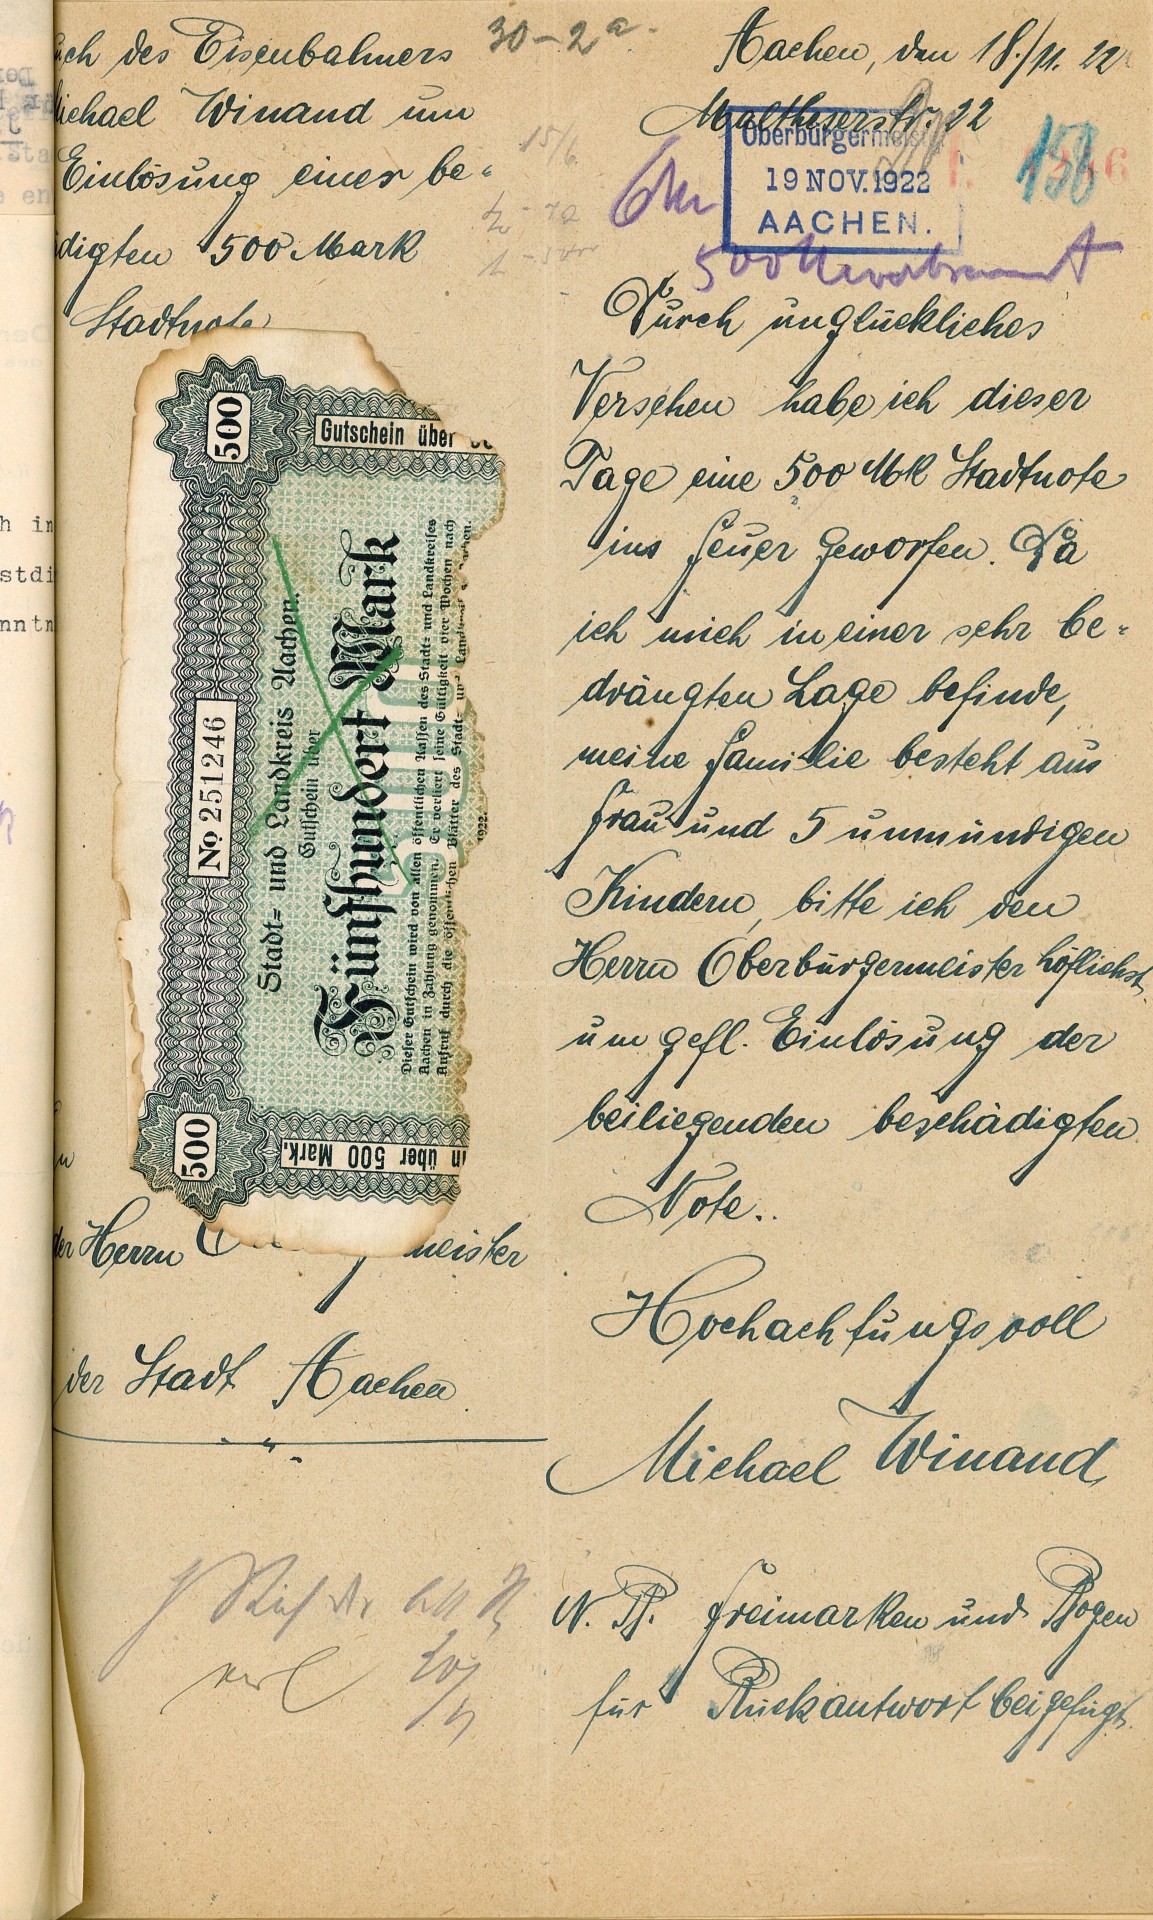 30-2a.
des Eisenbahners
Michael Winand um
Einlösung einer be-
digten 500 Mark
Stadtnote
500
Gutschein über
No 251246
Stadt- und Landkreis Aachen.
Gutschein über
Fünfhundert Mark
Dieser Gutschein wird von allen öffentlichen Kassen des Stadt- und Landkreises
Aachen in Zahlung genommen. Er verliert seine Gültigkeit vier Wochen nach
Aufruf durch die öffentlichen Blätter des Stadt- und
1922.
500
in über 500 Mark.
Herrn meister
der Stadt Aachen
Aachen, den 18./11. 22
Maltheserstr. 22
Oberbürgermeister
19 NOV. 1922
AACHEN.
158
500 M verbrannt
Durch unglückliches
Versehen habe ich dieser
Tage eine 500 Mk Stadtnote
ins Feuer geworfen. Da
ich mich in einer sehr be-
drängten Lage befinde,
meine Familie besteht aus
Frau und 5 unmündigen
Kindern, bitte ich den
Herrn Oberbürgermeister höflichst,
um gefl. Einlösung der
beiliegenden beschädigten
Note..
Hochachtungsvoll
Michael Winand
N. B. Freimarken und Bogen
für Rückantwort beigefügt.